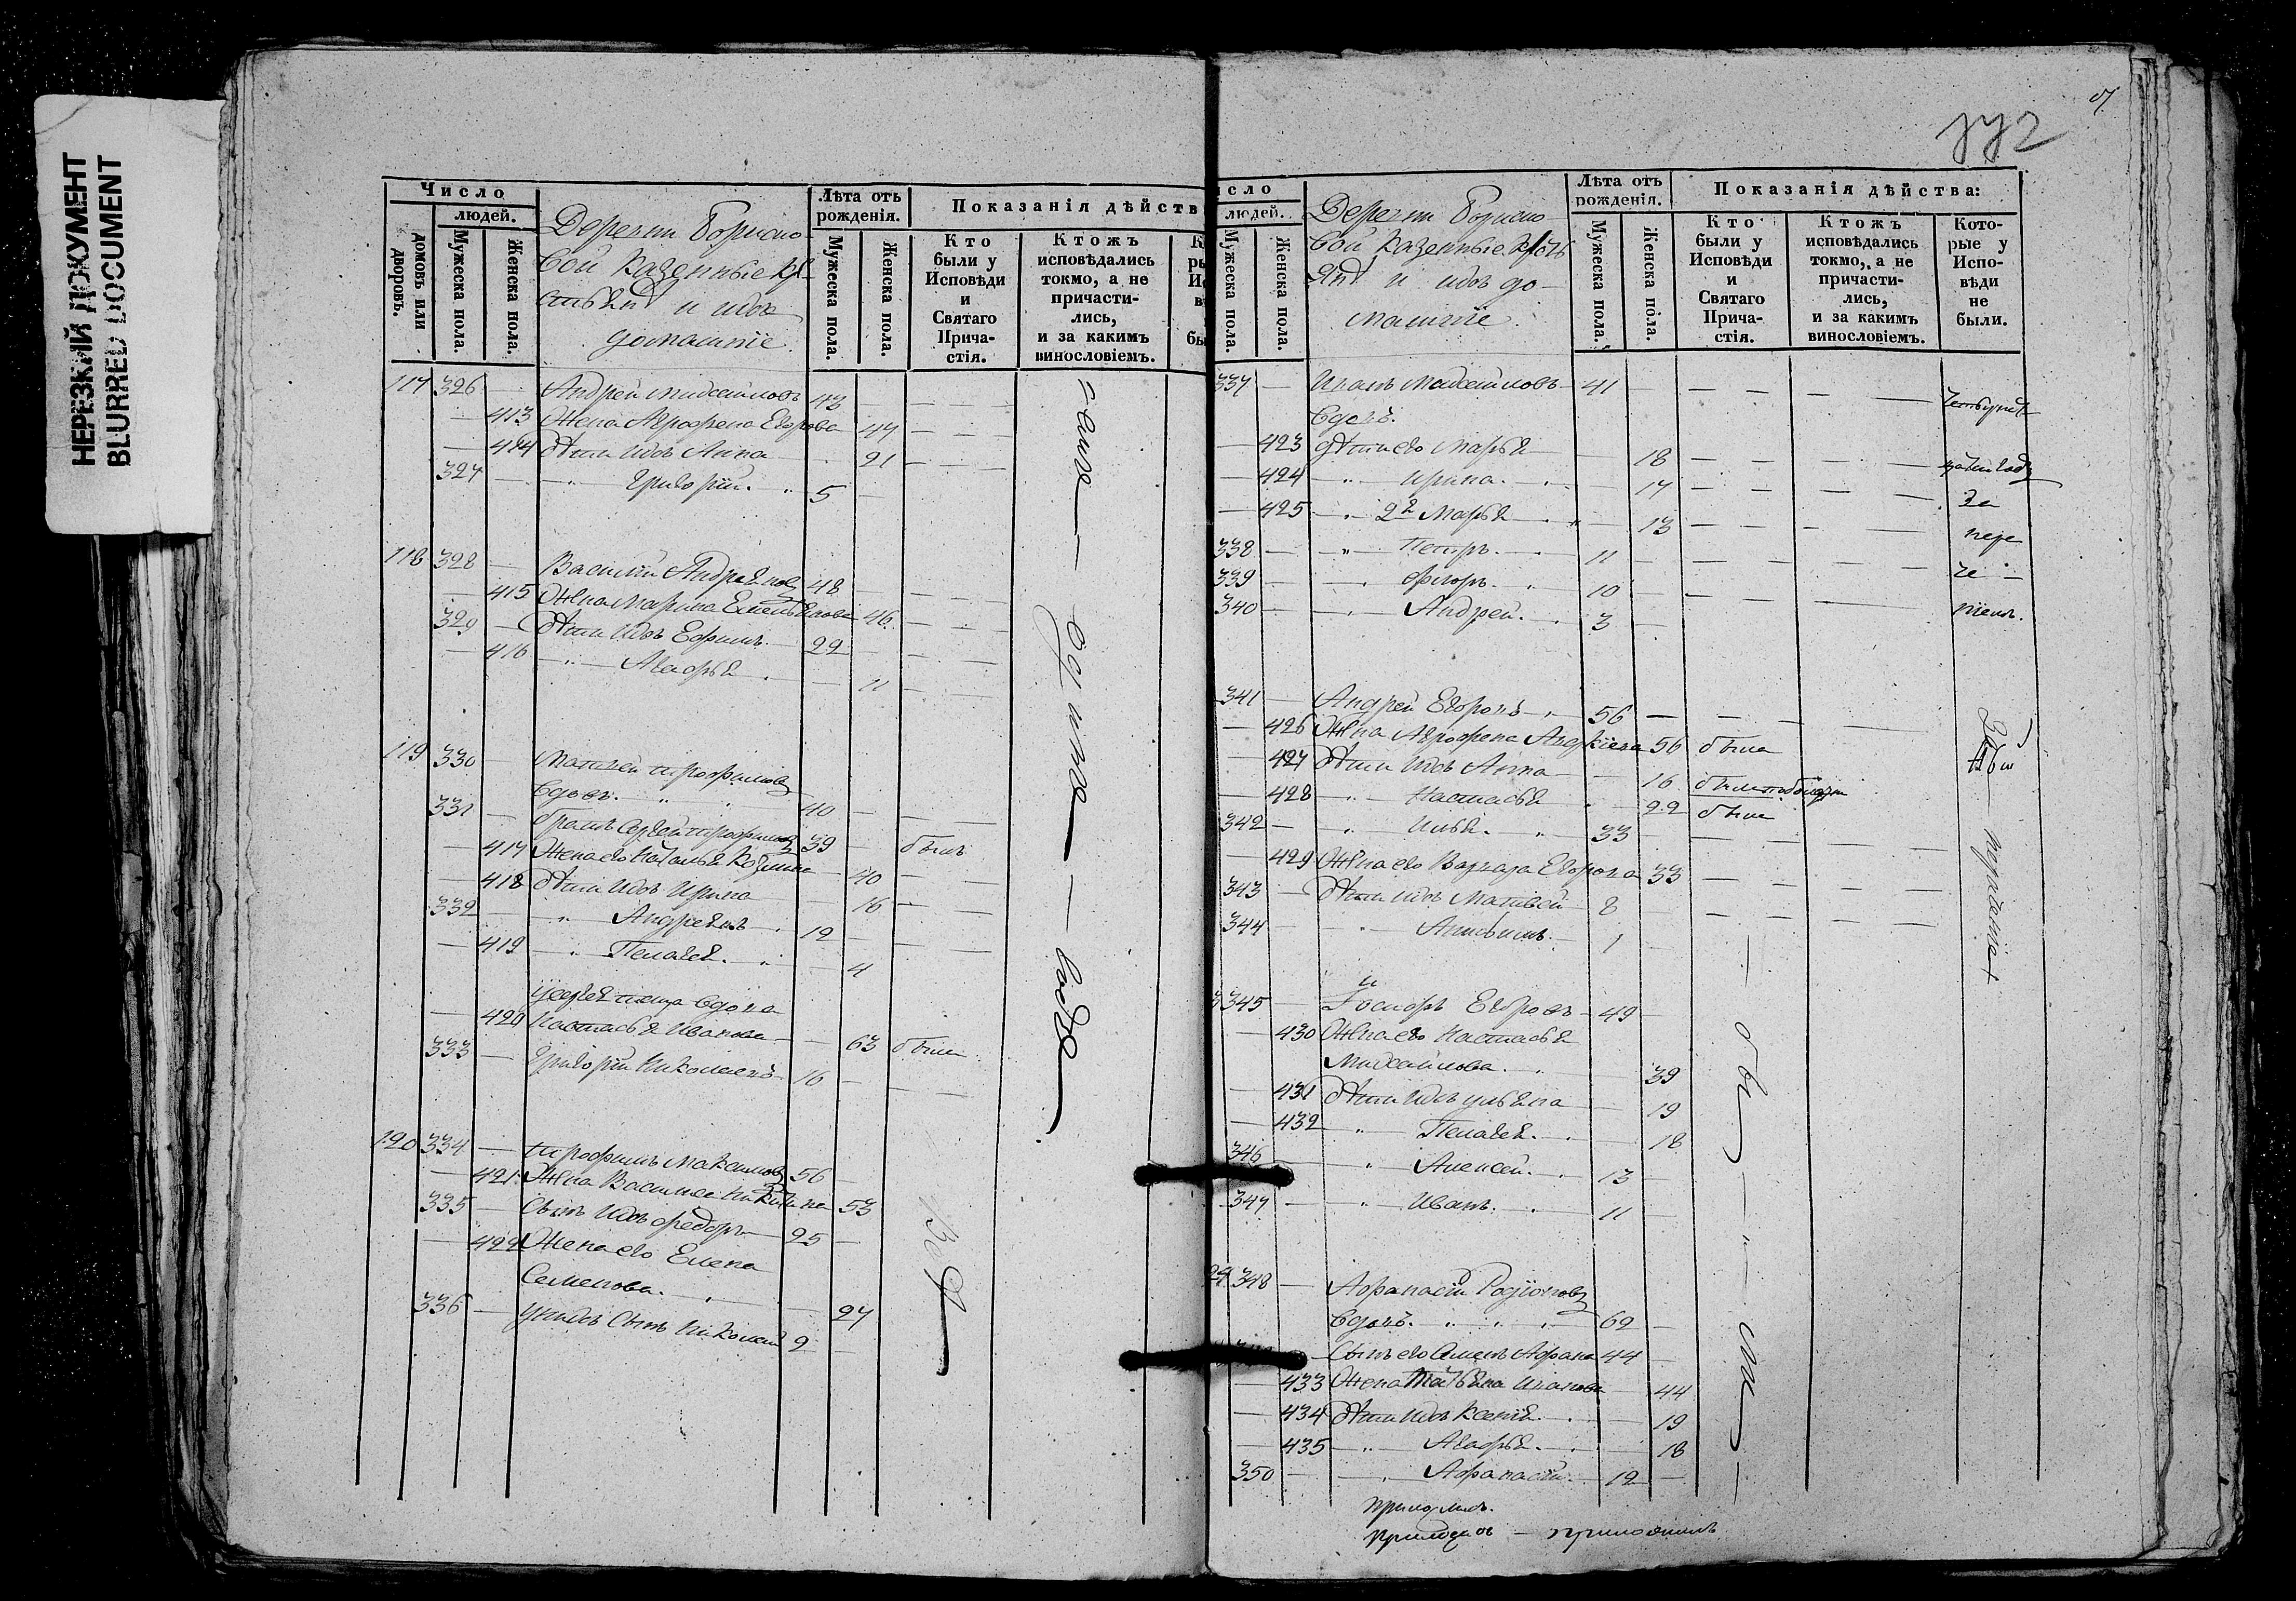 НЕРЕЗКИЙ ДОКУМЕНТ
BLURRED DOCUMENT
Число
людей.
домовъ или дворовъ.
Мужеска пола.
Женска пола.
казенные
и ихъ
домашніе
Лѣта отъ рожденія.
Мужеска пола.
Женска пола.
Показанія дѣйств
Кто были у Исповѣди и Святаго Прича-стія.
Ктожъ исповѣдались токмо, а не причасти-лись, и за какимъ винословіемъ.
117 326 — Андрей Михайловъ 43
— 413 Жена Агрофена Егорова 47
— 414 Дѣти ихъ Анна 21
327 — Григорій. 5
118 328 — Василій Андреяновъ 48
— 415 Жена Марина Емельянова 46
329 — Дѣти ихъ Ефимъ 22
— 416 — Агафья 11
119 330 — Матвей Трофимовъ
вдовъ. 40
331 — братъ Сергей Трофимовъ 39 — былъ
— 417 Жена его Наталья Козмина 40
— 418 Дѣти ихъ Ирина 16
332 — Андреянъ 12
— 419 — Пелагея. 4
у Сергея теща вдова
— 420 Настасья Иванова 63 была
333 — Григорій Николаевъ 16
120 334 — Трофимъ Максимовъ 56
— 421 Жена Василиса Никитина 53
335 — Сынъ ихъ Федоръ 25
— 422 Жена его Елена
Семенова. 27
336 — у нихъ сынъ Николай 2
исло
людей.
Мужеска пола.
Женска пола.
казенные
и ихъ до-
машніе
Лѣта отъ рожденія.
Мужеска пола.
Женска пола.
Показанія дѣйства:
Кто были у Исповѣди и Святаго Прича-стія.
Ктожъ исповѣдались токмо, а не причасти-лись, и за какимъ винословіемъ.
Кото-рые у Испо-вѣди не были.
337 — Иванъ Михайловъ 41
вдовъ.
— 423 Дѣти его Марья 18
— 424 — Ирина. 17
за
— 425 — 2я Марья 13
338 — Петръ. 11
339 — Флоръ. 10
340 — Андрей. 3
341 — Андрей Егоровъ 56
— 426 Жена Агрофена 56 была
— 427 Дѣти ихъ Анна 16
— 428 — Настасья 22 была
342 — Илья. 33
— 429 Жена его Варвара Егорова 33
343 — Дѣти ихъ Матвей 8
344 — 1
345 — Егоровъ 49
— 430 Жена его Настасья
Михайлова. 39
— 431 Дѣти ихъ Ульяна 19
— 432 — Пелагея. 18
346 — Алексей. 13
347 — Иванъ. 11
348 — Афанасій Родіоновъ
вдовъ. 62
Сынъ его Семенъ Афана 44
— 433 Жена Татьяна Иванова 44
— 434 Дѣти ихъ Ксенія 19
— 435 — Агафья. 18
350 — Афанасій 12